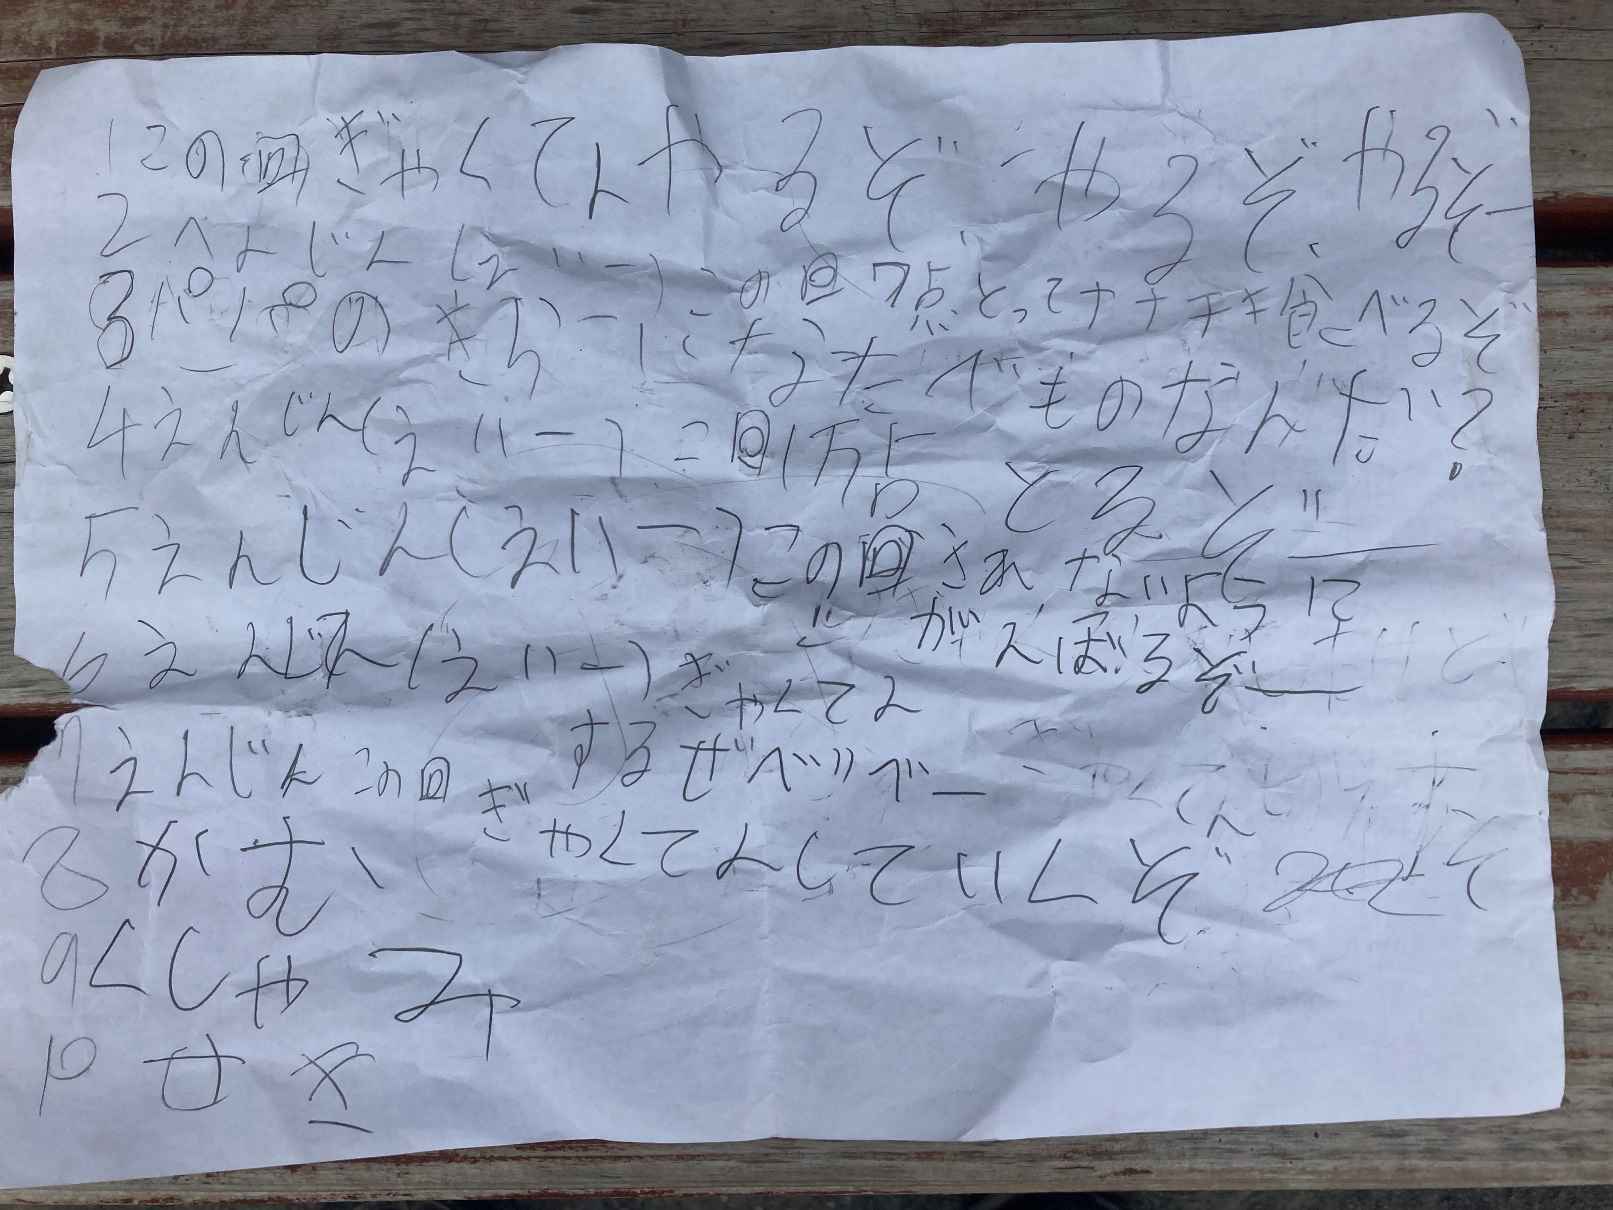 1この回ぎゃくてんやるぞーやるぞ、やるぞー
2へんじん(えいー)この回7点とってナナチキ食べるぞ
3パパのきらーになたべものなんだい?
4えんじん(えいー)こ回1万占とるぞー
5えんじん(えいー)この回さされないようにがんばるぞー
6えんじん(えいー)ぎゃくてんするぜベリベー
7えんじんこの回ぎゃくてんしていくぞ
8かむ、
9くしゃみ
10せき